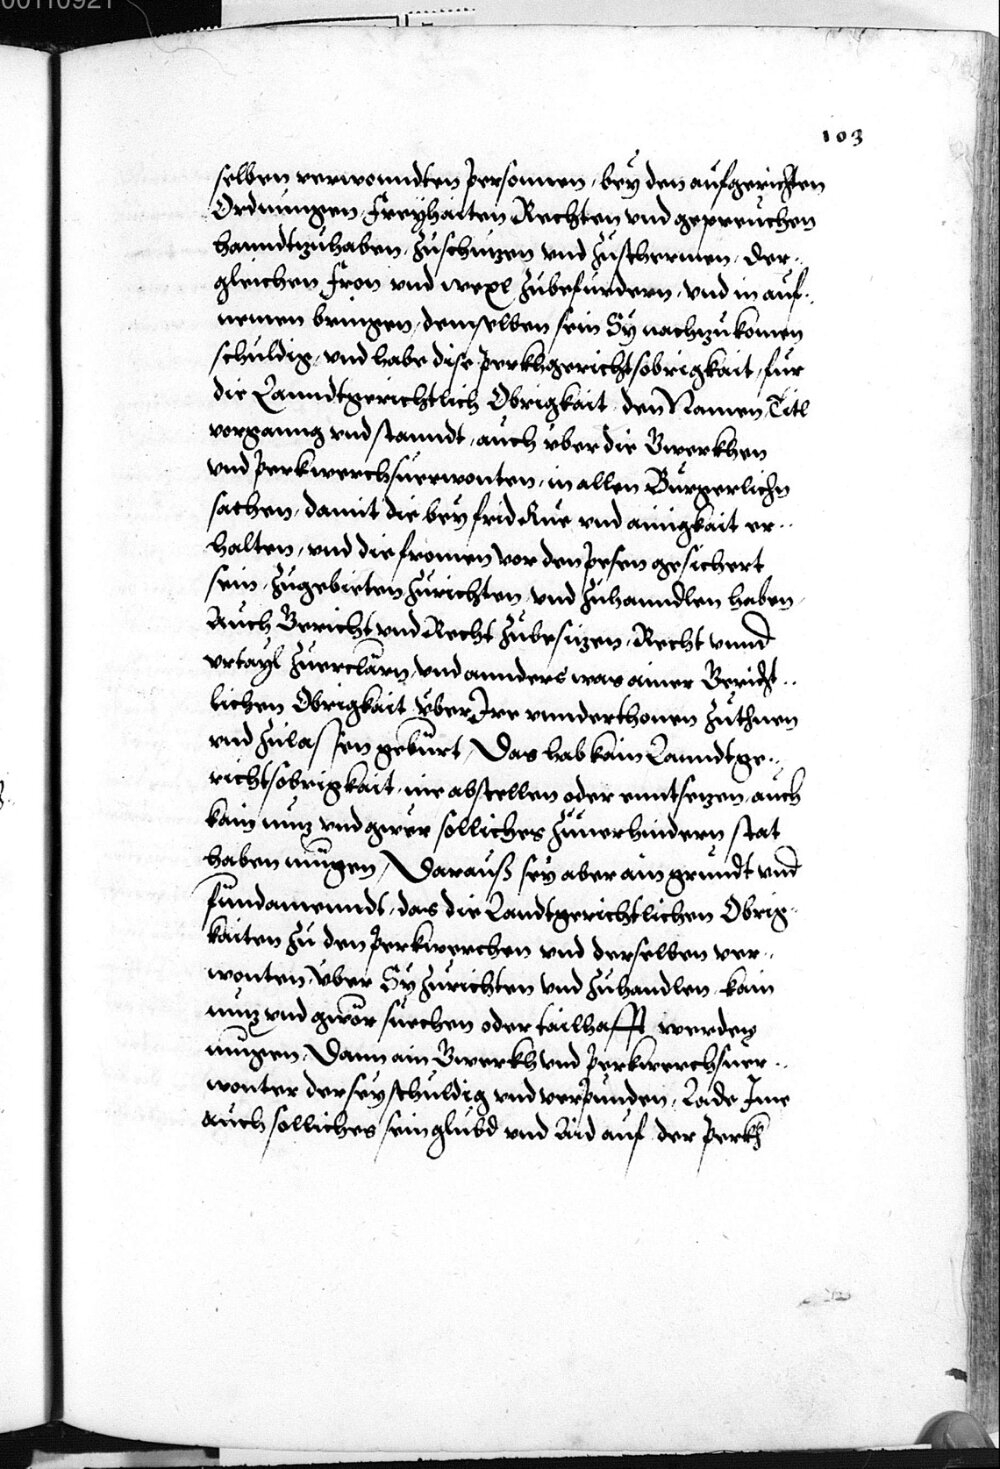 00110921
103
selben verwonndten personnen, bey den aufgerichten
Ordnungen, Freyhaiten Rechten vnd gepreuchen
hanndtzuhaben, zuschuzen vnd zuschermen, der-
gleichen fron vnd wexl zubefurdern, vnd in auf-
nemen bringen, demselben sein Sy nachzukomen
schuldig, vnd habe dise perkhgerichtsobrigkait, fur
die Lanndtgerichtlich Obrigkait, den Namen, Titl
vorganng vnd stanndt, auch vber die Bwerkhen
vnd perkwerchsuerwonten, in allen Burgerlichn
sachen, damit die bey frid Rue vnd ainigkait er-
halten, vnd die fromen vor den pesen gesichert
sein, zugebieten zurichten vnd zuhanndlen haben,
Auch Gericht vnd Recht zubesizen, Recht vnnd
vrtayl zuerclärn, vnd annders was ainer Gericht-
lichen Obrigkait vber Ire vnnderthonen zuthuen
vnd zulassen gebürt, Das hab kain Lanndtge-
richtsobrigkait, nie abstellen oder enntsezen, auch
kain nuz vnd gwer solliches zuuerhindern stat
haben mügen, Darauß sey aber ain grundt vnd
fundamenndt, das die Landtgerichtlichen Obrig-
kaiten zu den perkwerchen vnd derselben ver-
wonten, vber Sy zurichten vnd zuhandlen, kain
nuz vnd gwör suechen oder tailhafft werden
mugen, Dann ain Bwerkh vnd perkwerchsuer-
wonter der sey schuldig vnd verpunden, Lade Ime
auch solliches sein glübd vnd Aid auf, der perkh